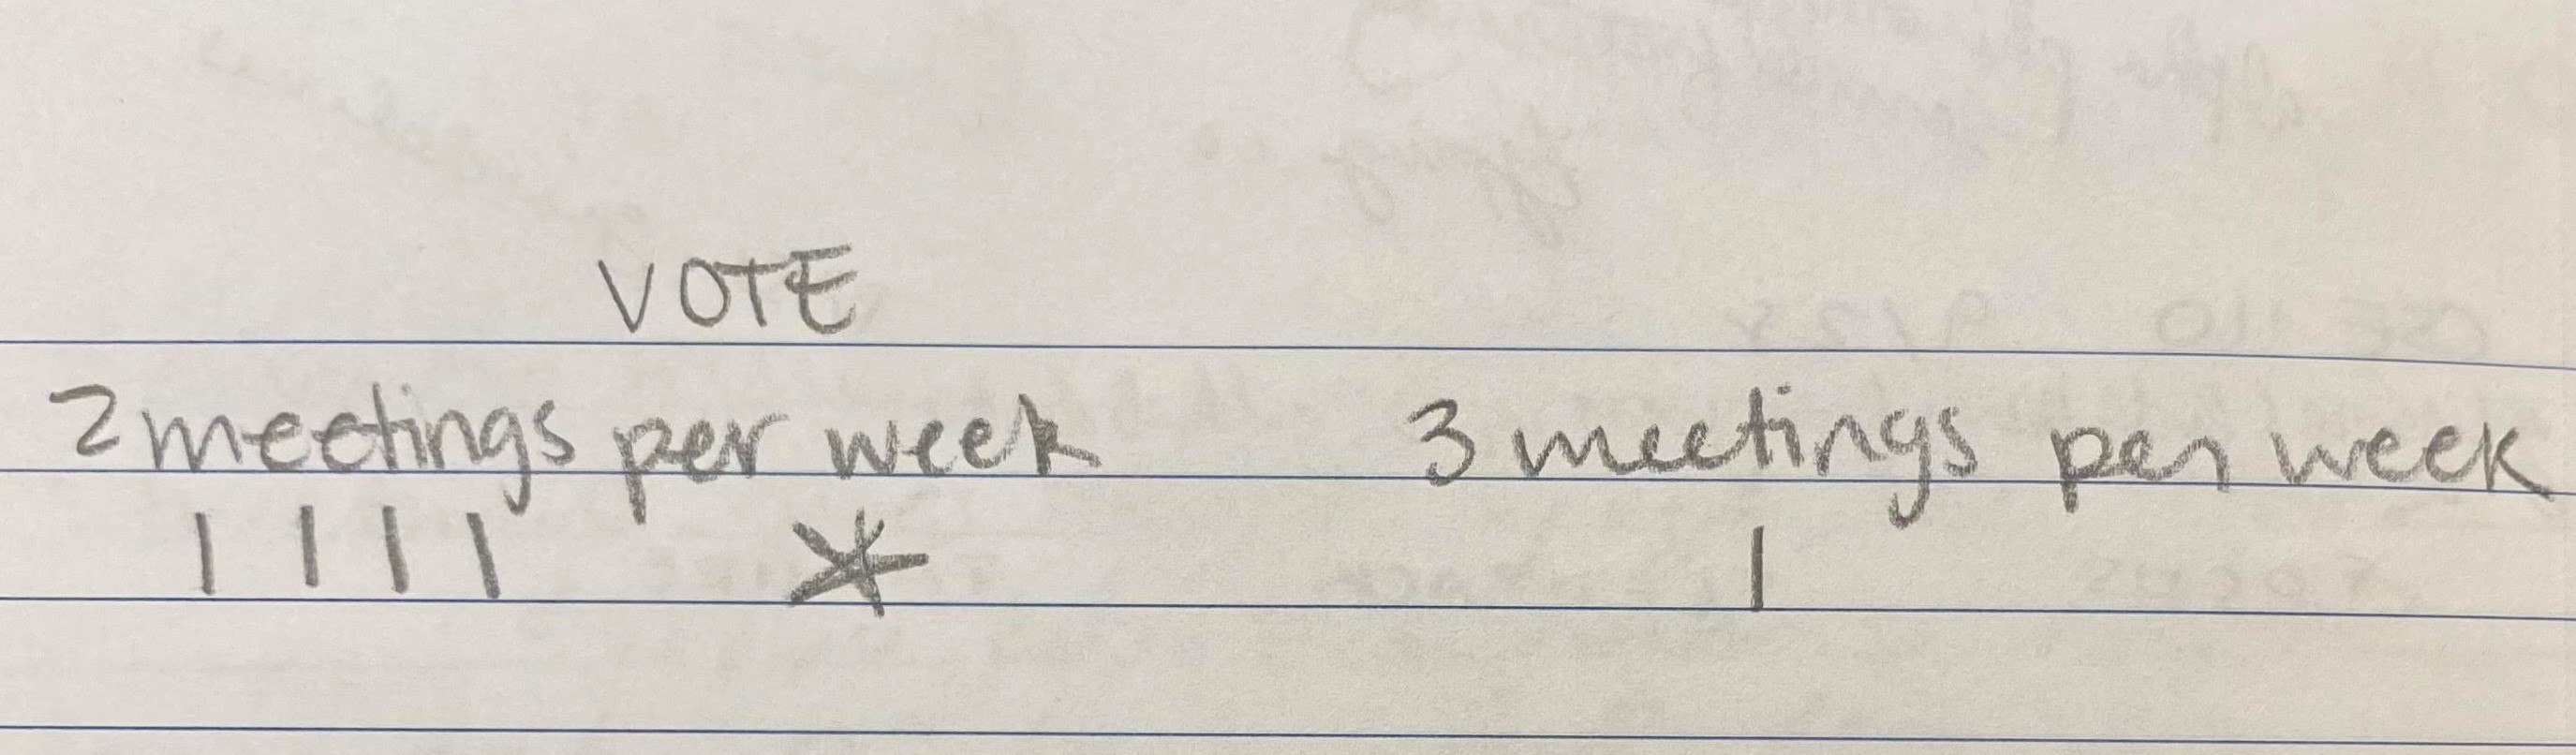 VOTE
2 meetings per week 3 meetings per week
| | | | * |